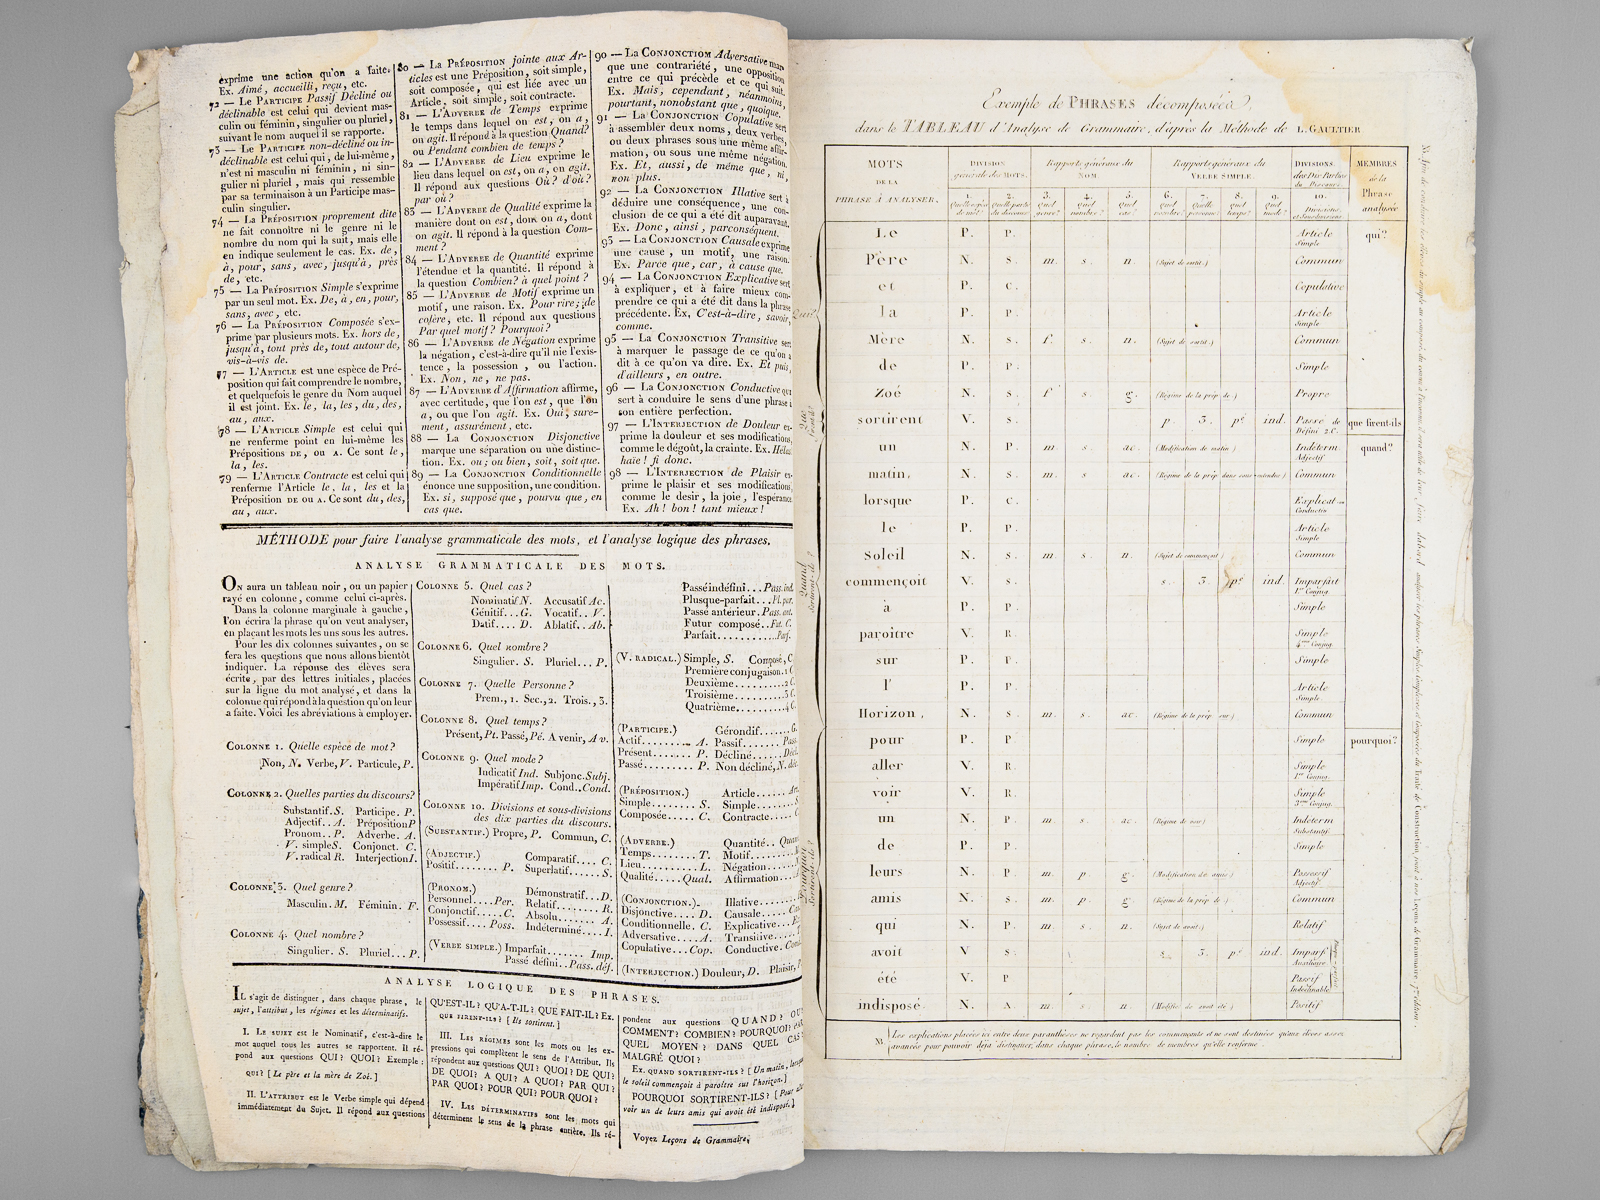 exprime une action qu'on a faite.
Ex. Aimé, accueilli, reçu, etc.
72 — Le Participe Passif Décliné ou
déclinable est celui qui devient mas-
culin ou féminin, singulier ou pluriel,
suivant le nom auquel il se rapporte.
73 — Le Participe non-décliné ou in-
déclinable est celui qui, de lui-même,
n'est ni masculin ni féminin, ni sin-
gulier ni pluriel, mais qui ressemble
par sa terminaison à un Participe mas-
culin singulier.
74 — La Préposition proprement dite
ne fait connoître ni le genre ni le
nombre du nom qui la suit, mais elle
en indique seulement le cas. Ex. de,
à, pour, sans, avec, jusqu'à, près
de, etc.
75 — La Préposition Simple s'exprime
par un seul mot. Ex. De, à, en, pour,
sans, avec, etc.
76 — La Préposition Composée s'ex-
prime par plusieurs mots. Ex. hors de,
jusqu'à, tout près de, tout autour de,
vis-à-vis de.
77 — L'Article est une espèce de Pré-
position qui fait comprendre le nombre,
et quelquefois le genre du Nom auquel
il est joint. Ex. le, la, les, du, des,
au, aux.
78 — L'Article Simple est celui qui
ne renferme point en lui-même les
Prépositions de, ou a. Ce sont le,
la, les.
79 — L'Article Contracte est celui qui
renferme l'Article le, la, les et la
Préposition de ou a. Ce sont du, des,
au, aux.
80 — La Préposition jointe aux Ar-
ticles est une Préposition, soit simple,
soit composée, qui est liée avec un
Article, soit simple, soit contracte.
81 — L'Adverbe de Temps exprime
le temps dans lequel on est, on a,
on agit. Il répond à la question Quand?
ou Pendant combien de temps?
82 — L'Adverbe de Lieu exprime le
lieu dans lequel on est, on a, on agit.
Il répond aux questions Où? d'où?
par où?
83 — L'Adverbe de Qualité exprime la
manière dont on est, dont on a, dont
on agit. Il répond à la question Com-
ment?
84 — L'Adverbe de Quantité exprime
l'étendue et la quantité. Il répond à
la question Combien? à quel point?
85 — L'Adverbe de Motif exprime un
motif, une raison. Ex. Pour rire; de
colère, etc. Il répond aux questions
Par quel motif? Pourquoi?
86 — L'Adverbe de Négation exprime
la négation, c'est-à-dire qu'il nie l'exis-
tence, la possession, ou l'action.
Ex. Non, ne, ne pas.
87 — L'Adverbe d'Affirmation affirme,
avec certitude, que l'on est, que l'on
a, ou que l'on agit. Ex. Oui, sure-
ment, assurément, etc.
88 — La Conjonction Disjonctive
marque une séparation ou une distinc-
tion. Ex. ou; ou bien, soit, soit que.
89 — La Conjonction Conditionnelle
énonce une supposition, une condition.
Ex. si, supposé que, pourvu que, en
cas que.
90 — La Conjonction Adversative marq
que une contrariété, une opposition
entre ce qui précède et ce qui suit.
Ex. Mais, cependant, néanmoins,
pourtant, nonobstant que, quoique.
91 — La Conjonction Copulative sert
à assembler deux noms, deux verbes,
ou deux phrases sous une même affir-
mation, ou sous une même négation.
Ex. Et, aussi, de même que, ni,
non plus.
92 — La Conjonction Illative sert à
déduire une conséquence, une con-
clusion de ce qui a été dit auparavant.
Ex. Donc, ainsi, parconséquent.
93 — La Conjonction Causale exprime
une cause, un motif, une raison.
Ex. Parce que, car, à cause que.
94 — La Conjonction Explicative sert
à expliquer, et à faire mieux com-
prendre ce qui a été dit dans la phrase
précédente. Ex, C'est-à-dire, savoir,
comme.
95 — La Conjonction Transitive sert
à marquer le passage de ce qu'on a
dit à ce qu'on va dire. Ex. Et puis,
d'ailleurs, en outre.
96 — La Conjonction Conductive qui
sert à conduire le sens d'une phrase à
son entière perfection.
97 — L'Interjection de Douleur ex-
prime la douleur et ses modifications,
comme le dégoût, la crainte. Ex. Hélas
haïe! fi donc.
98 — L'Interjection de Plaisir ex-
prime le plaisir et ses modifications,
comme le desir, la joie, l'espérance.
Ex. Ah! bon! tant mieux!
MÉTHODE pour faire l'analyse grammaticale des mots, et l'analyse logique des phrases.
ANALYSE GRAMMATICALE DES MOTS.
On aura un tableau noir, ou un papier
rayé en colonne, comme celui ci-après.
Dans la colonne marginale à gauche,
l'on écrira la phrase qu'on veut analyser,
en plaçant les mots les uns sous les autres.
Pour les dix colonnes suivantes, on se
fera les questions que nous allons bientôt
indiquer. La réponse des élèves sera
écrite, par des lettres initiales, placées
sur la ligne du mot analysé, et dans la
colonne qui répond à la question qu'on leur
a faite. Voici les abréviations à employer.
Colonne 1. Quelle espèce de mot?
Non, N. Verbe, V. Particule, P.
Colonne 2. Quelles parties du discours?
Substantif. S. Participe. P.
Adjectif.. A. Préposition P
Pronom.. P. Adverbe. A.
V. simple S. Conjonct. C.
V. radical R. Interjection I.
Colonne 3. Quel genre?
Masculin. M. Féminin. F.
Colonne 4. Quel nombre?
Singulier. S. Pluriel... P.
Colonne 5. Quel cas?
Nominatif N. Accusatif Ac.
Génitif... G. Vocatif.. V.
Datif.... D. Ablatif.. Ab.
Colonne 6. Quel nombre?
Singulier. S. Pluriel... P.
Colonne 7. Quelle Personne?
Prem., 1. Sec., 2. Trois., 3.
Colonne 8. Quel temps?
Présent, Pt. Passé, Pé. A venir, Av.
Colonne 9. Quel mode?
Indicatif Ind. Subjonc. Subj.
Impératif Imp. Cond.. Cond.
Colonne 10. Divisions et sous-divisions
des dix parties du discours.
(Substantif.) Propre, P. Commun, C.
(Adjectif.) Comparatif.... C.
Positif........ P. Superlatif..... S.
(Pronom.) Démonstratif... D.
Personnel....Per. Relatif........ R.
Conjonctif..... C. Absolu....... A.
Possessif.... Poss. Indéterminé.... I.
(Verbe simple.) Imparfait....... Imp.
Passé défini.. Pass. déf.
Passé indéfini... Pass. ind.
Plusque-parfait... Pl. par.
Passé antérieur. Pass. ant.
Futur composé.. Fut. C.
Parfait........... Parf.
(V. radical.) Simple, S. Composé, C.
Première conjugaison. 1 C.
Deuxième.......... 2 C.
Troisième.......... 3 C.
Quatrième.......... 4 C.
(Participe.) Gérondif....... G.
Actif........ A. Passif....... Pass.
Présent....... P. Décliné...... Décl.
Passé......... P. Non décliné, N. déc.
(Préposition.) Article......
Simple........ S. Simple......
Composée..... C. Contracte.....
(Adverbe.) Quantité..
Temps........ T. Motif........
Lieu.......... L. Négation.....
Qualité..... Qual. Affirmation...
(Conjonction.) Illative.......
Disjonctive... D. Causale.....
Conditionnelle. C. Explicative...
Adversative.... A. Transitive....
Copulative... Cop. Conductive.
(Interjection.) Douleur, D. Plaisir,
ANALYSE LOGIQUE DES PHRASES.
Il s'agit de distinguer, dans chaque phrase, le
sujet, l'attribut, les régimes et les déterminatifs.
I. Le sujet est le Nominatif, c'est-à-dire le
mot auquel tous les autres se rapportent. Il ré-
pond aux questions QUI? QUOI? Exemple:
QUI? [Le père et la mère de Zoé.]
II. L'attribut est le Verbe simple qui dépend
immédiatement du Sujet. Il répond aux questions
QU'EST-IL? QU'A-T-IL? QUE FAIT-IL? Ex.
que firent-ils? [Ils sortirent.]
III. Les régimes sont les mots ou les ex-
pressions qui complètent le sens de l'Attribut. Ils
répondent aux questions QUI? QUOI? DE QUI?
DE QUOI? A QUI? A QUOI? PAR QUI?
PAR QUOI? POUR QUI? POUR QUOI?
IV. Les déterminatifs sont les mots qui
déterminent le sens de la phrase entière. Ils ré-
pondent aux questions QUAND? OU
COMMENT? COMBIEN? POURQUOI?
QUEL MOYEN? DANS QUEL CAS
MALGRÉ QUOI?
Ex. quand sortirent-ils? [Un matin, lorsque
le soleil commençois à paroître sus l'horizon.]
POURQUOI SORTIRENT-ILS? [Pour aller
voir un de leurs amis qui avoit été indisposé.]
Voyez Leçons de Grammaire,
Exemple de PHRASES décomposées
dans le TABLEAU d'Analyse de Grammaire, d'après la Méthode de L. GAULTIER
MOTS DE LA PHRASE À ANALYSER.
DIVISION générale des MOTS.
Rapports généraux du NOM.
Rapports généraux du VERBE SIMPLE.
DIVISIONS des Dix Parties du Discours.
MEMBRES de la Phrase analysée
1. Quelle espèce de mot? 2. Quelle partie du discours 3. Quel genre? 4. Quel nombre? 5. Quel cas? 6. Quel nombre? 7. Quelle personne? 8. Quel temps? 9. Quel mode? 10. Divisions et Sousdivisions
Le P. P. Article Simple qui?
Père N. S. m. s. n. (Sujet de sortit.) Commun
et P. C. Copulative
la P. P. Article Simple
Mère N. S. f. s. n. (Sujet de sortit.) Commun
de P. P. Simple
Zoé N. S. f s. g. (Régime de la prép. de) Propre
sortirent V. S. p. 3. pé ind. Passé Défini 2. C. que firent-ils
un N. P. m. s. ac. (Modification de matin) Indéterm Adjectif quand?
matin, N. S. m. s ac. (Régime de la prép. dans sous-entendue) Commun
lorsque P. C. Explicat Conductive
le P. P. Article Simple
Soleil N. S. m. s. n. (Sujet de commençoit) Commun
commençoit V. S. s. 3. pé ind. Imparfait 1re Conjug.
à P. P. Simple
paroitre V. R. Simple 4me Conjug.
sur P. P. Simple
l' P. P. Article Simple
Horizon, N. S. m. s. ac. (Régime de la prép. sur) Commun
pour P. P Simple pourquoi?
aller V. R. Simple 1re Conjug.
voir V. R. Simple 3me Conjug.
un N. P. m s. ac. (Régime de voir) Indéterm Substantif
de P. P. Simple
leurs N. P. m. p. g. (Modification de amis) Possessif Adjectif
amis N. S. m. p. g. (Régime de la prép. de) Commun
qui N. P. m. s. n. (Sujet de avoit.) Relatif
avoit V S. s. 3. pé ind. Imparf Auxiliaire
été V. P Passif Indéclinable
indisposé N. A. m. s. n. (Modific. de avoit été) Positif
Qui?
Que firent-ils?
Quand sortirent-ils?
Pourquoi sortirent-ils?
N. Les explications placées ici entre deux parenthèses ne regardent pas les commençants et ne sont destinées qu'aux élèves assez
avancés pour pouvoir déjà distinguer, dans chaque phrase, le nombre de membres qu'elle renferme.